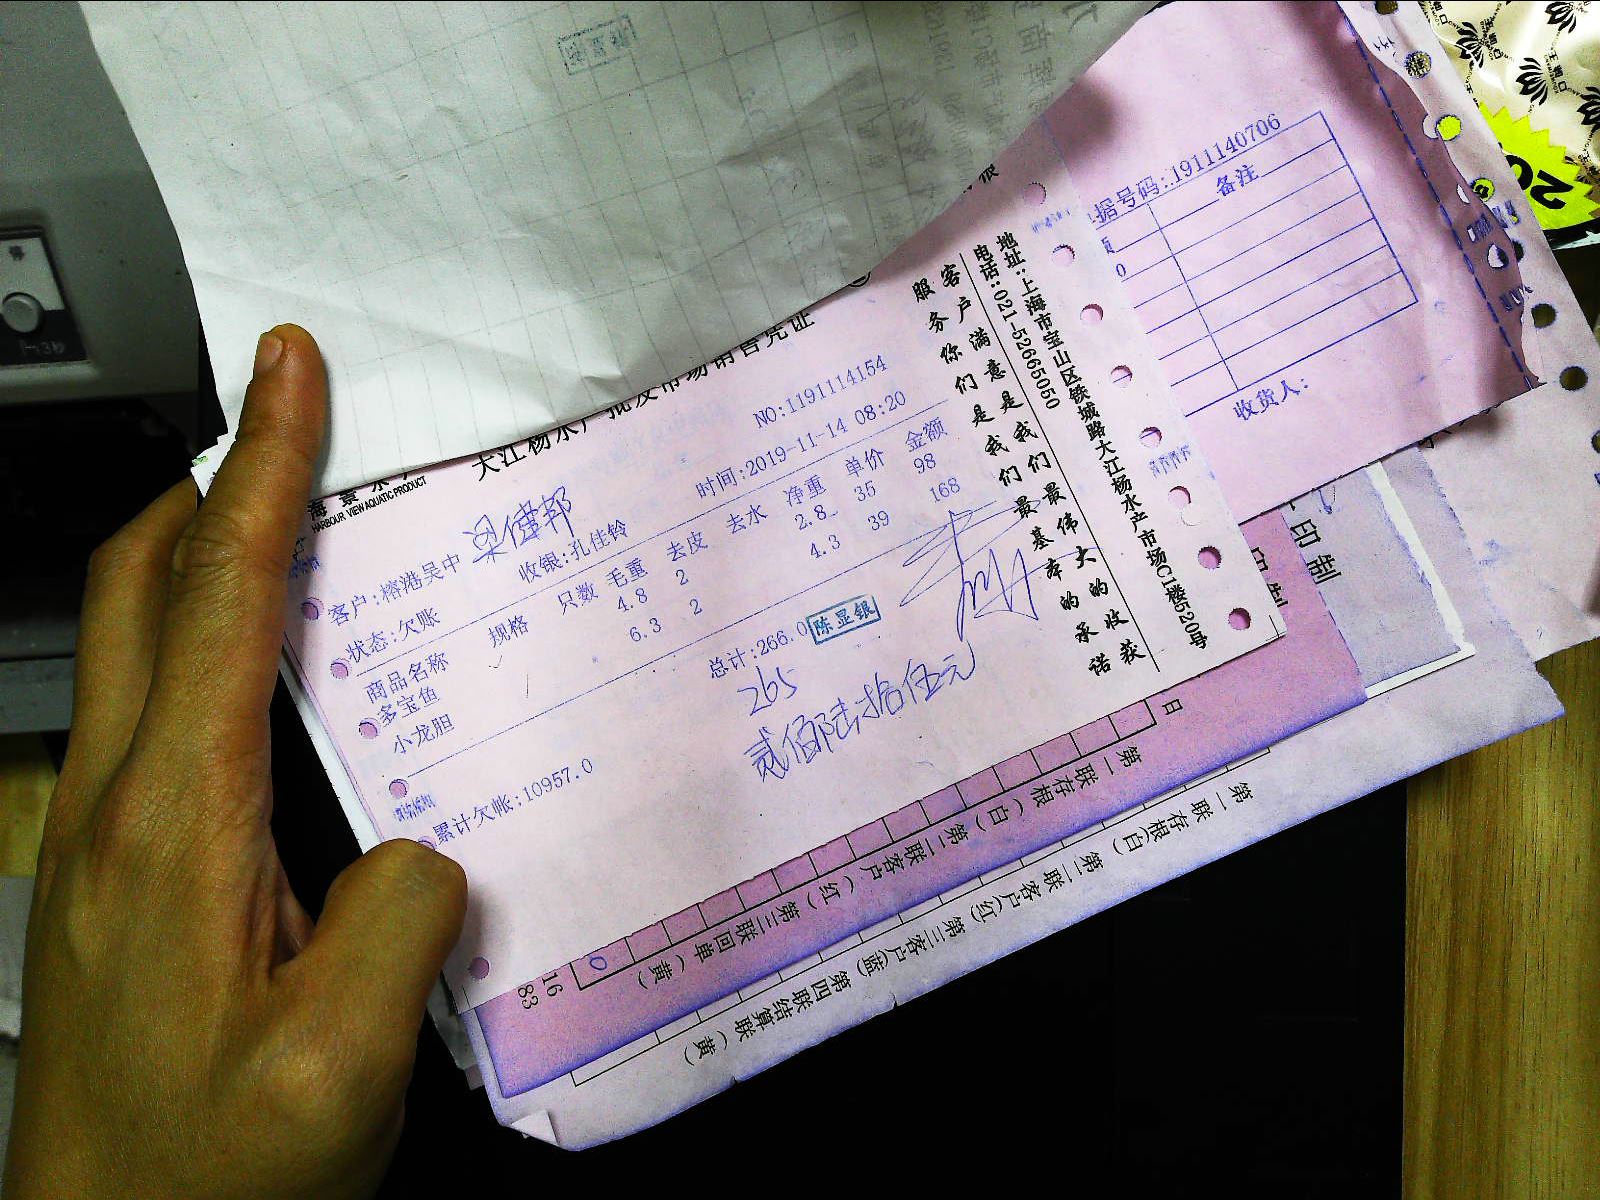 海景水产
HARBOUR VIEW AQUATIC PRODUCT
大江杨水产批发市场销售凭证
NO:1191114154
客户:榕港吴中 梁伟邦
时间:2019-11-14 08:20
状态:欠账 收银:孔佳铃
商品名称 规格 只数 毛重 去皮 去水 净重 单价 金额
多宝鱼 4.8 2 2.8 35 98
小龙胆 6.3 2 4.3 39 168
总计:266.0
陈显银
265
贰佰陆拾伍元
累计欠帐:10957.0
客户满意是我们最伟大的收获
服务你们是我们最基本的承诺
地址:上海市宝山区铁城路大江杨水产市场C1楼520号
电话:021-52665050
据号码:1911140706
备注
收货人:
日
第一联存根(白) 第二联客户(红) 第三联回单(黄)
16
83
0
第一联存根(白) 第二联客户(红) 第三客户(蓝) 第四联结算联(黄)
印制